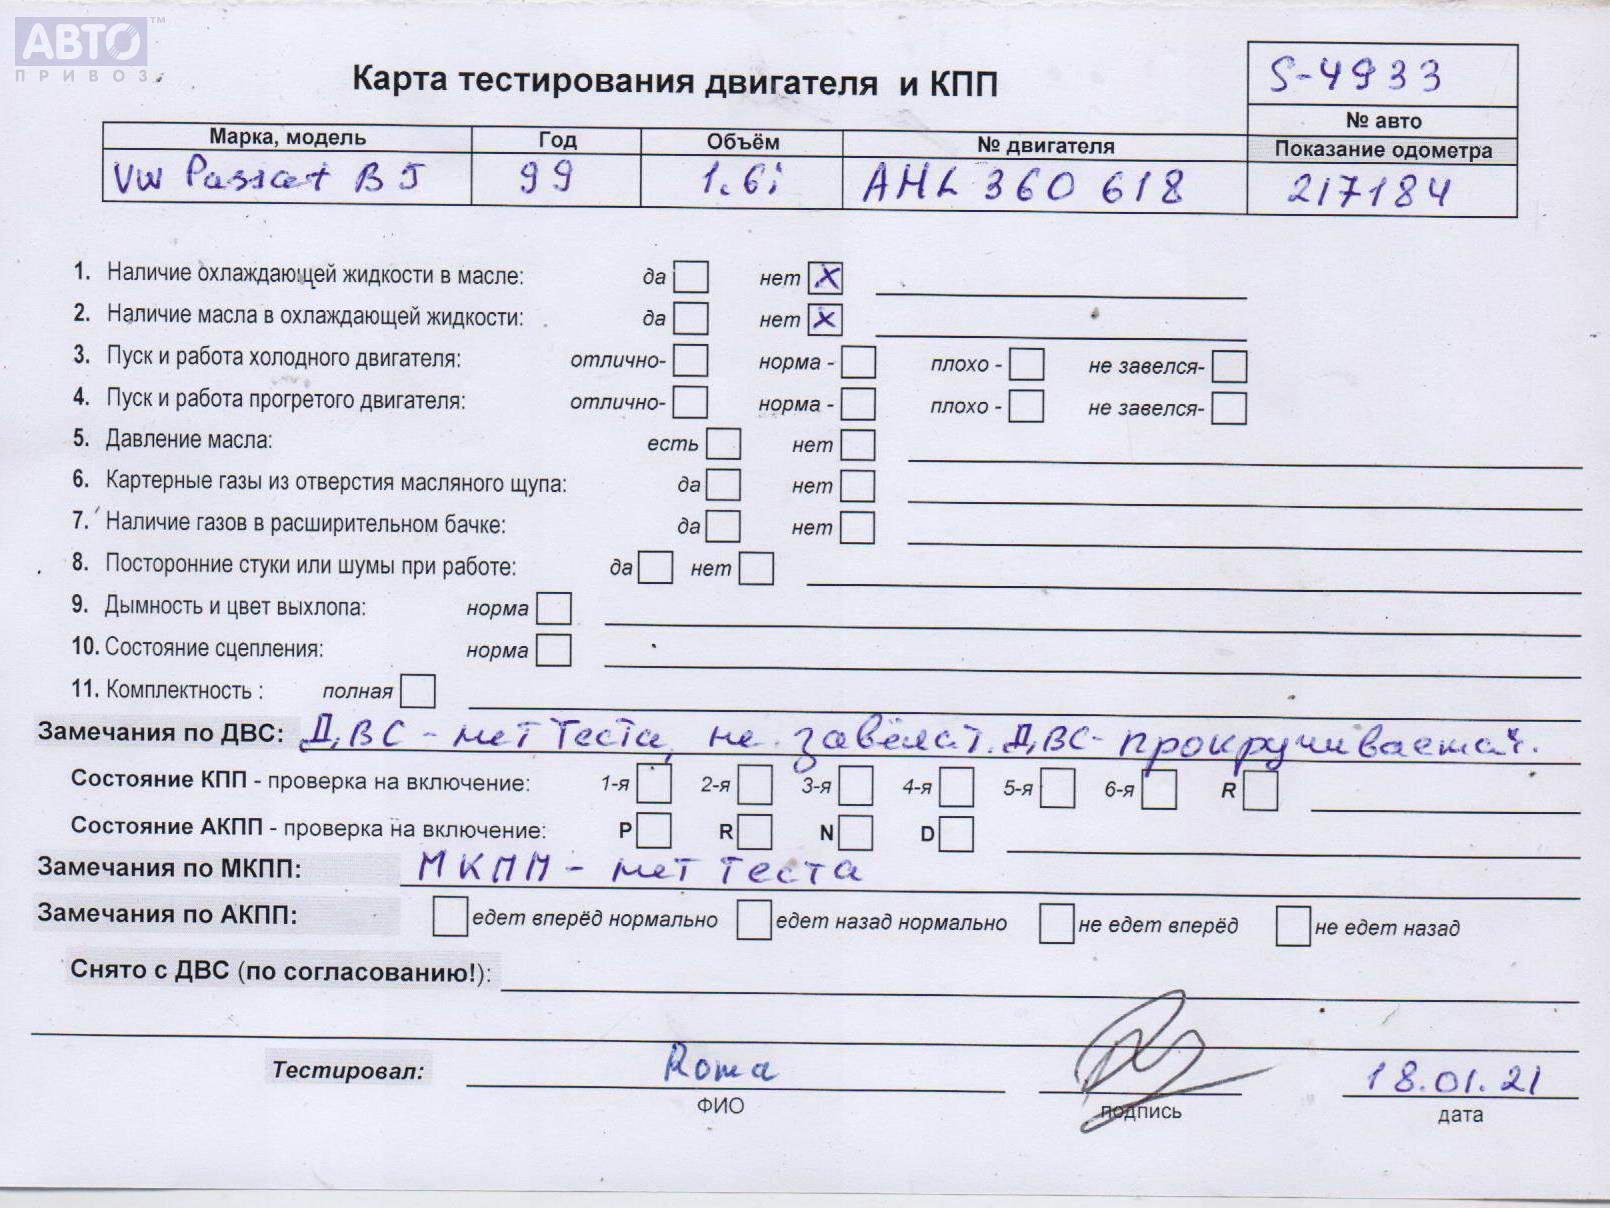 АВТО™
ПРИВОЗ
Карта тестирования двигателя и КПП
S-4933
№ авто
Марка, модель Год Объём № двигателя Показание одометра
VW Passat B5 99 1.6i AHL 360 618 217184
1. Наличие охлаждающей жидкости в масле: да нет X
2. Наличие масла в охлаждающей жидкости: да нет X
3. Пуск и работа холодного двигателя: отлично- норма - плохо - не завелся-
4. Пуск и работа прогретого двигателя: отлично- норма - плохо - не завелся-
5. Давление масла: есть нет
6. Картерные газы из отверстия масляного щупа: да нет
7. Наличие газов в расширительном бачке: да нет
8. Посторонние стуки или шумы при работе: да нет
9. Дымность и цвет выхлопа: норма
10. Состояние сцепления: норма
11. Комплектность : полная
Замечания по ДВС: ДВС - нет теста, не завёлся. ДВС- прокручивается.
Состояние КПП - проверка на включение: 1-я 2-я 3-я 4-я 5-я 6-я R
Состояние АКПП - проверка на включение: P R N D
Замечания по МКПП: МКПП - нет теста
Замечания по АКПП: едет вперёд нормально едет назад нормально не едет вперёд не едет назад
Снято с ДВС (по согласованию!):
Тестировал: Рома 18.01.21
ФИО подпись дата